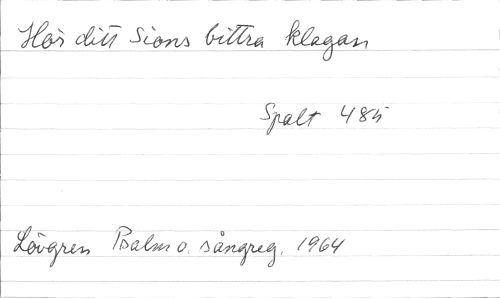 Hör ditt Sions bittra klagan
Spalt 485
Lövgren Psalm o. sångreg. 1964